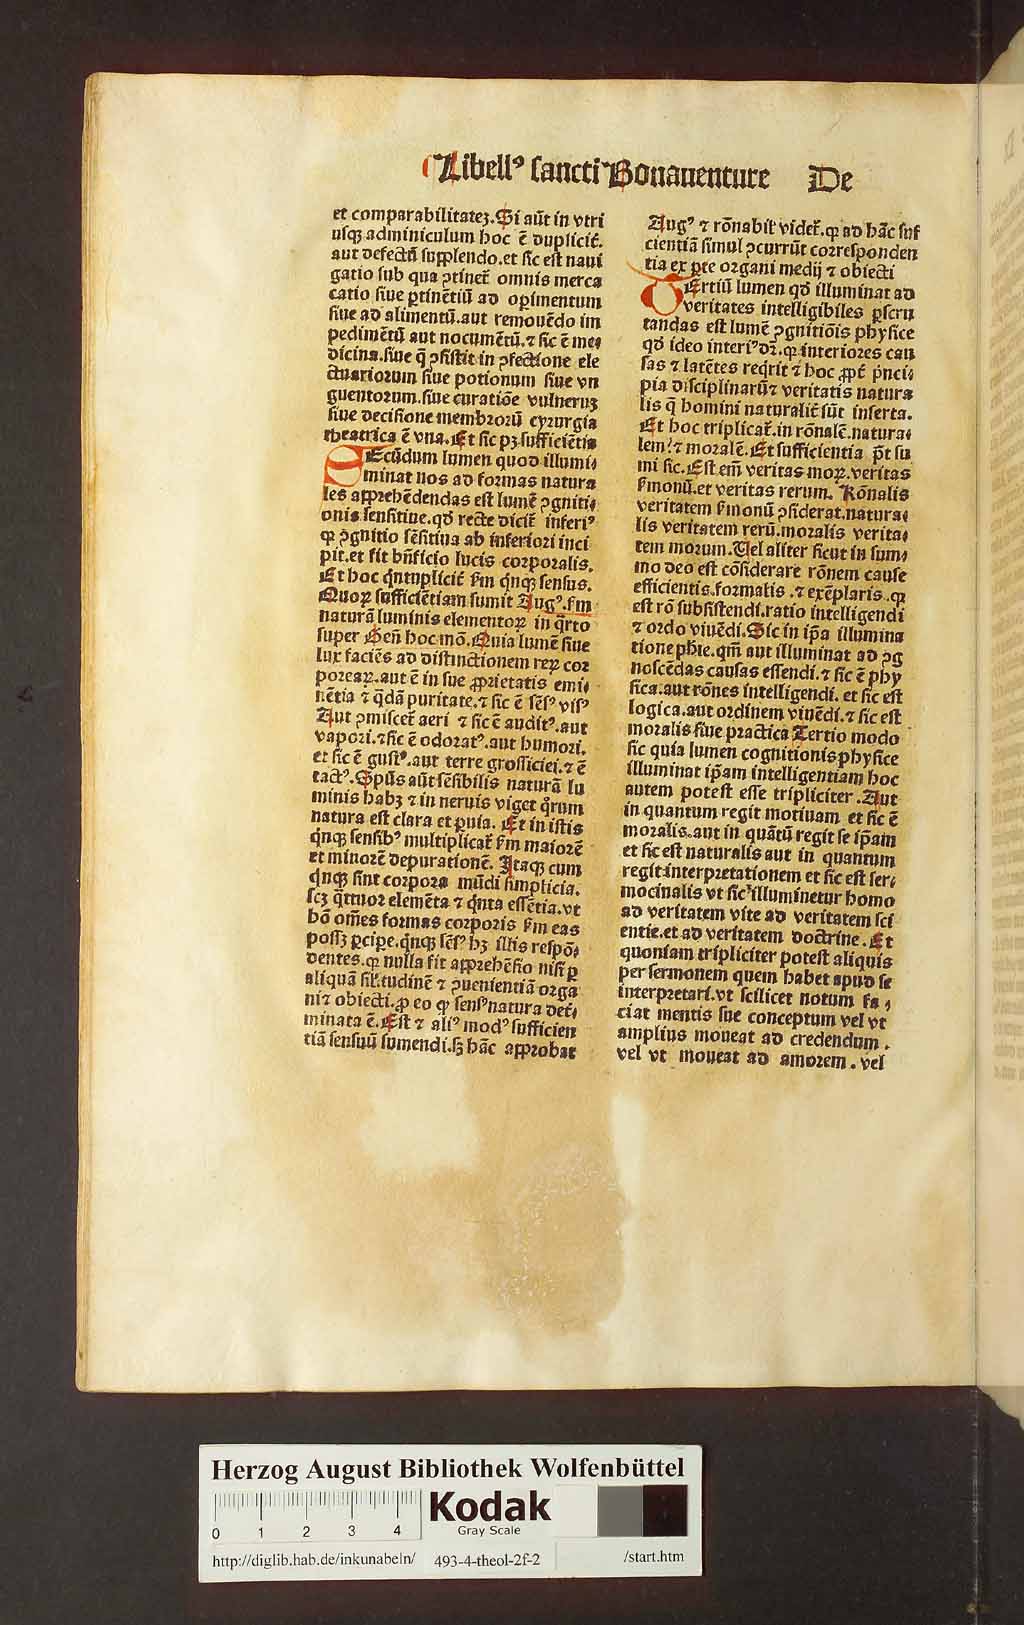 Libellꝰ sancti Bonauenture De
et comparabilitatez. Si aūt in vtri
usqꝫ adminiculum hoc ē duplicit᷑.
aut defectū supplendo. et sic est naui
gatio sub qua ꝯtinet᷑ omnis merca
catio siue ꝑtinētiū ad oꝑimentum
siue ad alimentū. aut remouēdo im
pedimētū aut nocumētū. ⁊ sic ē me⸗
dicina. siue q̄ ꝯsistit in ꝯfectione ele
ctuariorum siue potionum siue vn
guentorum. siue curatiōe vulneruꝫ
siue decisione membrorū cyrurgia
theatrica ē vna. Et sic pꝫ sufficiētia
SEcūdum lumen quod illumi⸗
minat nos ad formas natura
les apprehēdendas est lumē ꝯgniti⸗
onis sensitiue. qd̄ recte dicit᷑ inferiꝰ
qꝛ ꝯgnitio sēsitiua ab inferiori inci
pit. et fit bn̄ficio lucis corporalis.
Et hoc q̇ntuplicit᷑ s̄m q̇nqꝫ sensus.
Quoꝝ sufficiētiam sumit Augꝰ. s̄m
naturā luminis elementoꝝ in q̇rto
super Gen̄ hoc mō. Quia lumē siue
lux faciēs ad distinctionem reꝝ cor
poreaꝝ. aut ē in sue ꝓprietatis emi⸗
nētia ⁊ q̇dā puritate. ⁊ sic ē sēsꝰ visꝰ
Aut ꝯmiscet᷑ aeri ⁊ sic ē auditꝰ. aut
vapori. ⁊ sic ē odoratꝰ. aut humori.
et sic ē gustꝰ. aut terre grossiciei. ⁊ ē
tactꝰ. Spūs aūt sēsibilis naturā lu
minis habꝫ ⁊ in neruis viget q̊rum
natura est clara et ꝑuia. Et in istis
q̇nqꝫ sensibꝰ multiplicat᷑ s̄m maiorē
et minorē depurationē. Itaqꝫ cum
q̇nqꝫ sint corpora mūdi simplicia.
scꝫ q̇ttuor elemēta ⁊ q̇nta essētia. vt
hō om̄es formas corporis s̄m eas
possꝫ ꝑciꝑe. q̇nqꝫ sēsꝰ hꝫ illis respō⸗
dentes. qꝛ nulla fit apprehēsio nisi ꝑ
aliquā sil̄itudinē ⁊ ꝯuenientiā orga
ni ⁊ obiecti. ꝓ eo qꝛ sensꝰ natura det᷑⸗
minata ē. Est ⁊ aliꝰ modꝰ sufficien
tiā sensuū sumendi. sꝫ hāc approbat
Augꝰ ⁊ rōnabil᷑r videt᷑. qꝛ ad hāc suf
cientiā simul ꝯcurrūt corresponden
tia ex ꝑte organi medij ⁊ obiecti
TErtiū lumen qd̄ illuminat ad
veritates intelligibiles ꝑscru
tandas est lumē ꝯgnitiōis physice
qd̄ ideo interiꝰ dr̄. qꝛ interiores cau
sas ⁊ latētes req̇rit ⁊ hoc ꝓpt᷑ ṗnci⸗
pia disciplinarū ⁊ veritatis natura
lis q̄ homini naturalit᷑ sūt inserta.
Et hoc triplicat᷑. in rōnalē. natura⸗
lem. ⁊ moralē. Et sufficientia p̄t su
mi sic. Est em̄ veritas moꝝ. veritas
s̄monū. et veritas rerum. Rōnalis
veritatem s̄monū ꝯsiderat. natura⸗
lis veritatem rerū. moralis verita⸗
tem morum. Uel aliter sicut in sum⸗
mo deo est cōsiderare rōnem cause
efficientis. formalis. ⁊ exēplaris. qꝛ
est rō subsistendi. ratio intelligendi
⁊ ordo viuēdi. Sic in ip̄a illumina
tione ph̄ie. qm̄ aut illuminat ad ꝯg
noscēdas causas essendi. ⁊ sic ē phy
sica. aut rōnes intelligendi. et sic est
logica. aut ordinem viuēdi. ⁊ sic est
moralis siue practica Tertio modo
sic quia lumen cognitionis physice
illuminat ip̄am intelligentiam hoc
autem potest esse tripliciter. Aut
in quantum regit motiuam et sic ē
moralis. aut in quātū regit se ip̄am
et sic est naturalis aut in quantum
regit interpretationem et sic est ser⸗
mocinalis vt sic illuminetur homo
ad veritatem vite ad veritatem sci
entie. et ad veritatem doctrine. Et
quoniam tripliciter potest aliquis
per sermonem quem habet apud se
interpretari. vt scilicet notum fa⸗
ciat mentis sue conceptum vel vt
amplius moueat ad credendum.
vel vt moueat ad amorem. vel
Herzog August Bibliothek Wolfenbüttel
0 1 2 3 4
Kodak
Gray Scale
http://diglib.hab.de/inkunabeln/ 493-4-theol-2f-2 /start.htm